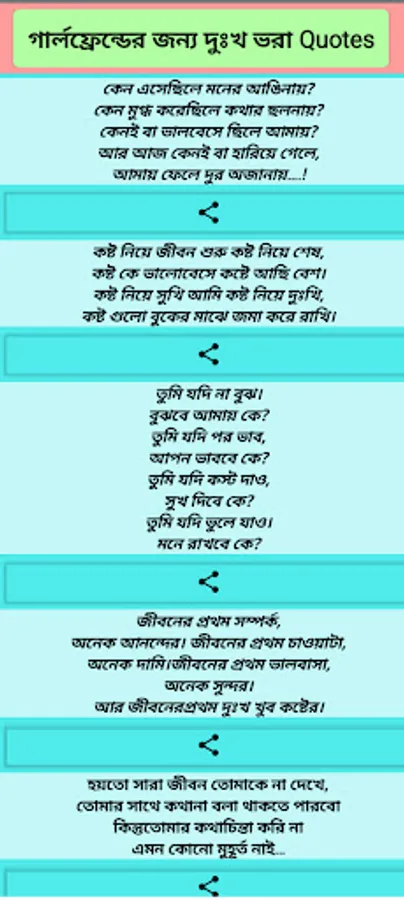 গার্লফ্রেন্ডের জন্য দুঃখ ভরা Quotes
কেন এসেছিলে মনের আঙিনায়?
কেন মুগ্ধ করেছিলে কথার ছলনায়?
কেনই বা ভালবেসে ছিলে আমায়?
আর আজ কেনই বা হারিয়ে গেলে,
আমায় ফেলে দুর অজানায়....!
কষ্ট নিয়ে জীবন শুরু কষ্ট নিয়ে শেষ,
কষ্ট কে ভালোবেসে কষ্টে আছি বেশ।
কষ্ট নিয়ে সুখি আমি কষ্ট নিয়ে দুঃখি,
কষ্ট গুলো বুকের মাঝে জমা করে রাখি।
তুমি যদি না বুঝ।
বুঝবে আমায় কে?
তুমি যদি পর ভাব,
আপন ভাববে কে?
তুমি যদি কস্ট দাও,
সুখ দিবে কে?
তুমি যদি ভুলে যাও।
মনে রাখবে কে?
জীবনের প্রথম সম্পর্ক,
অনেক আনন্দের। জীবনের প্রথম চাওয়াটা,
অনেক দামি।জীবনের প্রথম ভালবাসা,
অনেক সুন্দর।
আর জীবনেরপ্রথম দুঃখ খুব কষ্টের।
হয়তো সারা জীবন তোমাকে না দেখে,
তোমার সাথে কথানা বলা থাকতে পারবো
কিন্তুতোমার কথাচিন্তা করি না
এমন কোনো মুহূর্ত নাই...